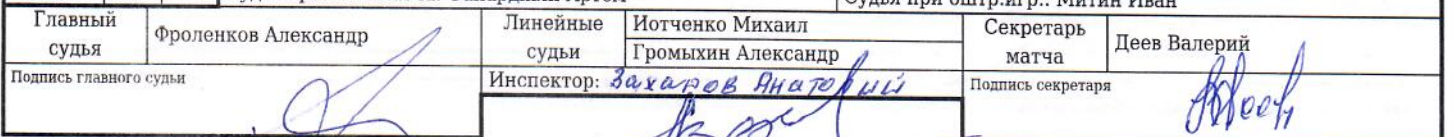 Судья при оштр.игр.: Митин Иван
Главный судья
Фроленков Александр
Линейные судьи
Иотченко Михаил
Громыхин Александр
Секретарь матча
Деев Валерий
Подпись главного судьи
Инспектор: Захаров Анатолий
Подпись секретаря